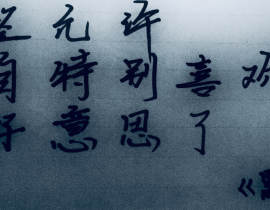 允许
特别喜
意思了
《